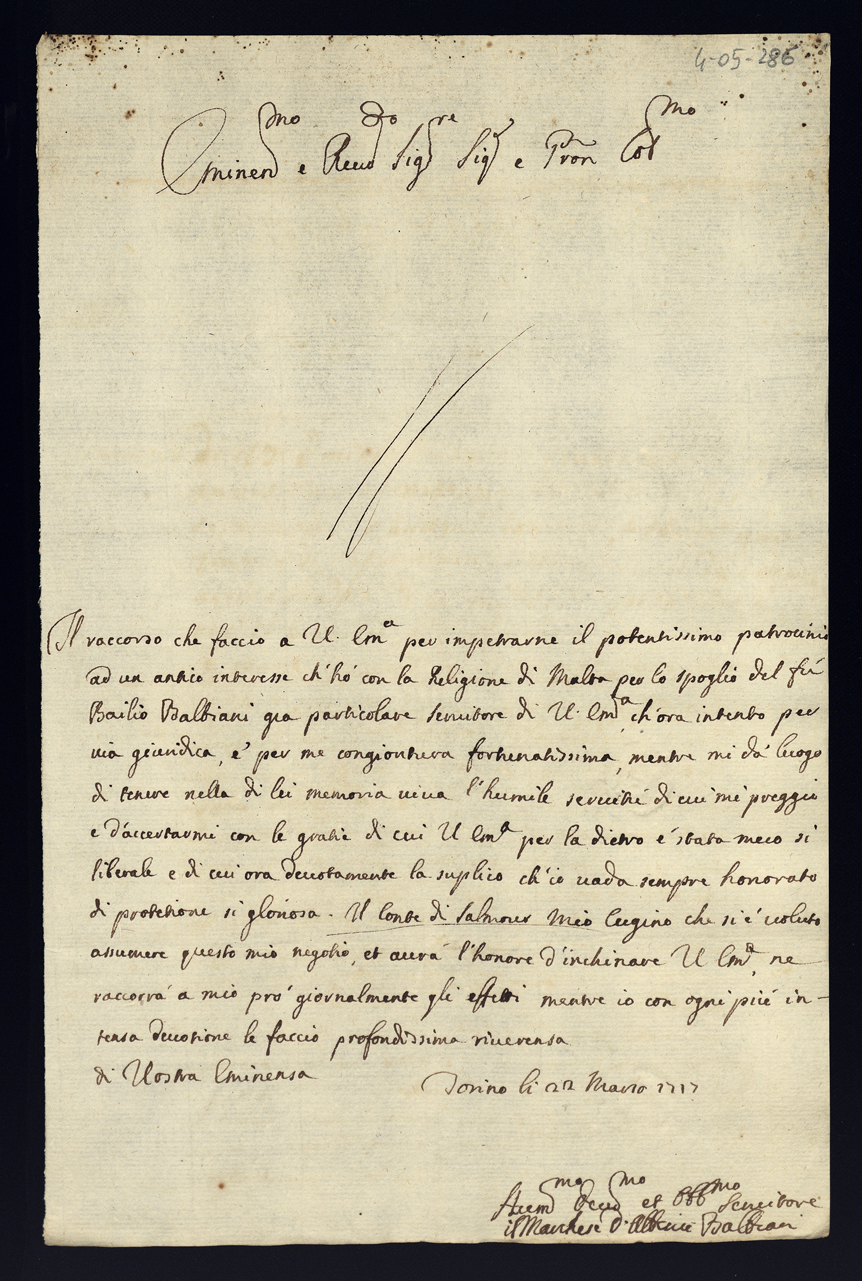 4-05-286
Eminen^mo e Reud^do Sig^re Sig^r e Pron Col^mo
Il raccorso che faccio a U. Em^a per impetrarne il potentissimo patrocinio
ad un antico interesse ch'hò con la Religione di Malta per lo spoglio del fù
Bailio Balbiani gia particolare seruitore di U. Em^a ch'ora intento per
uia giuridica, e' per me congiontura fortunatissima, mentre mi dà luogo
di tenere nella di lei memoria uiua l'humile seruitù di cui mi preggio
e d'accertarmi con le gratie di cui U Em^a per la dietro é stata meco si
liberale e di cui ora deuotamente la suplico ch'io uada sempre honorato
di protetione si gloriosa. Il Conte di Salmour mio Cugino che si é uoluto
assumere questo mio negotio, et aurà l'honore d'inchinare U Em^a, ne
raccorrà a mio prò giornalmente gli effetti mentre io con ogni più in-
tensa deuotione le faccio profondissima riuerensa
di Uostra Eminensa
Torino li 22 Marzo 1717
Hum^mo Deuo^mo et Obb^mo Seruitore
il Marchese d' Balbiani